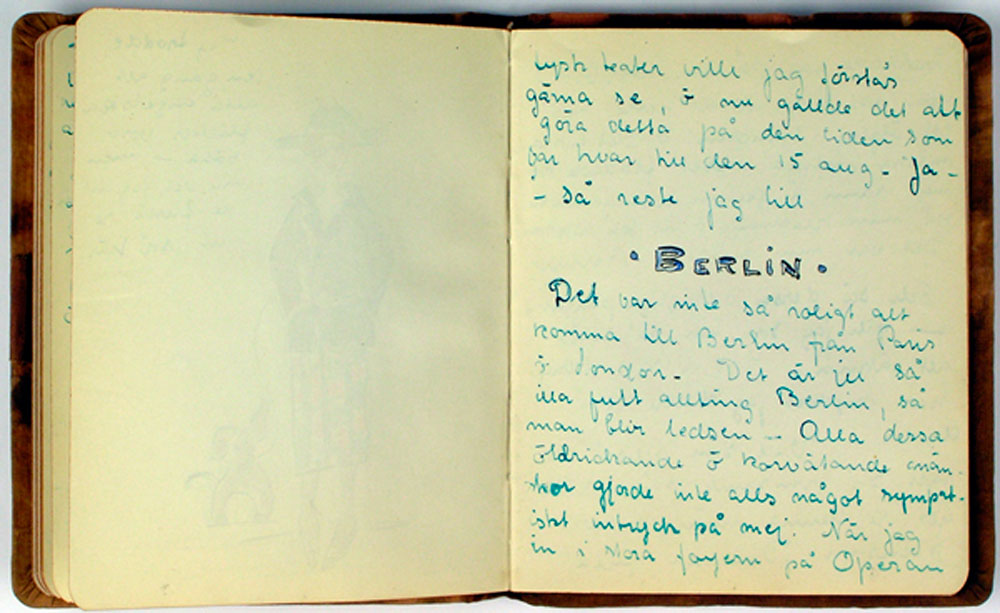 tysk teater ville jag förstås
gärna se, o nu gällde det att
göra detta på den tiden som
var kvar till den 15 aug - Ja -
- så reste jag till
• BERLIN •
Det var inte så roligt att
komma till Berlin från Paris
o London - Det är ju så
illa fult allting Berlin, så
man blir ledsen - Alla dessa
öldrickande o korvätande män-
skor gjorde inte alls något sympat-
iskt intryck på mej. När jag
in i stora foyern på Operan